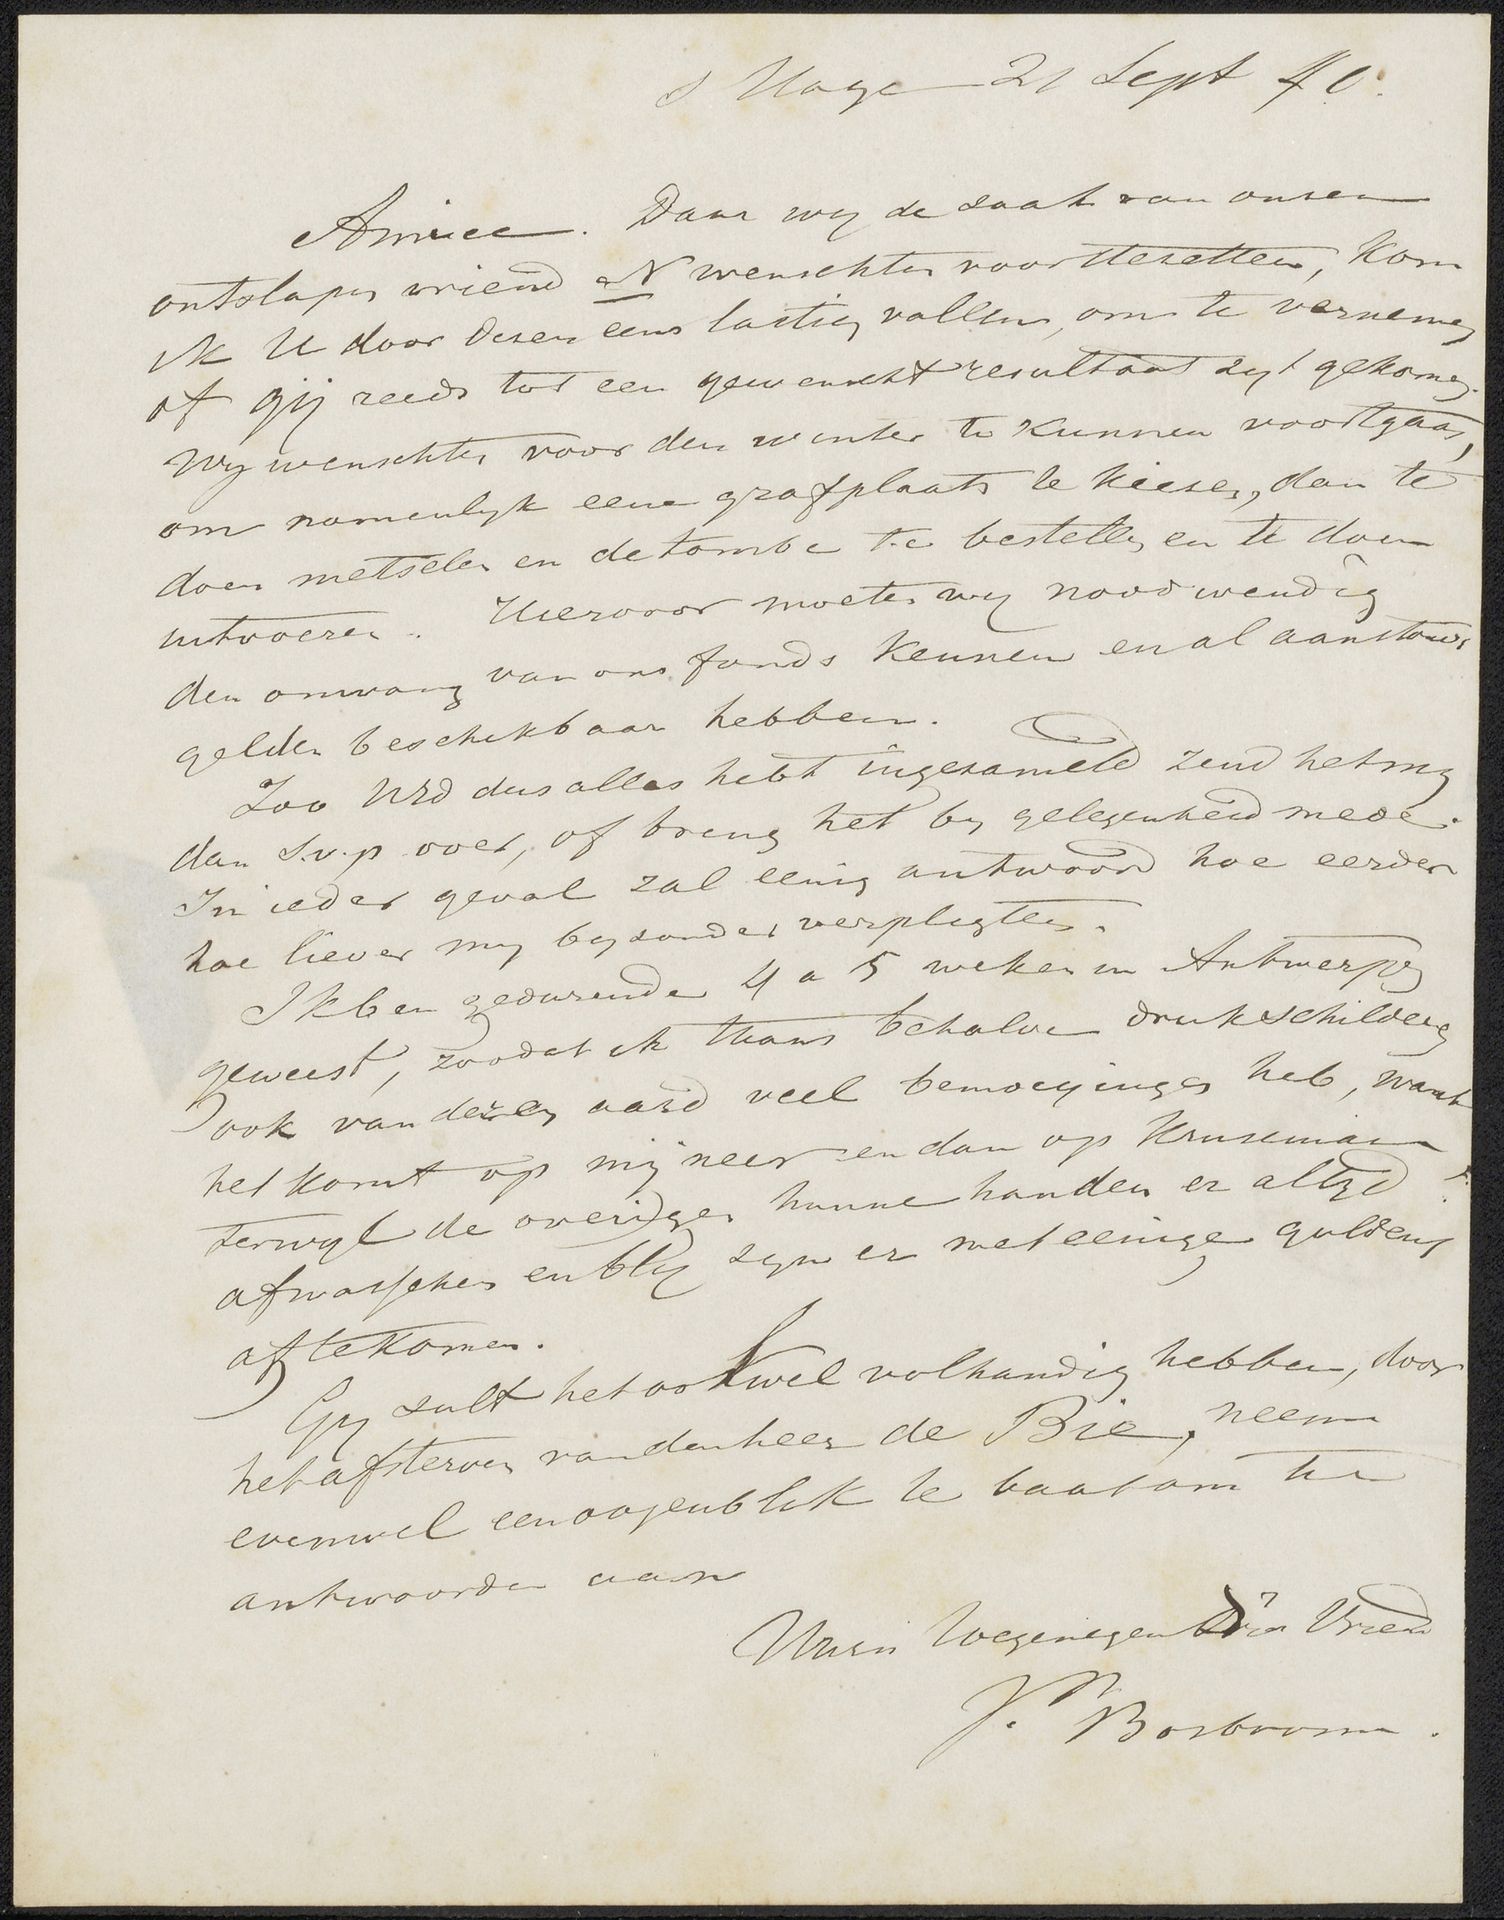 s Hage 21 Sept 40.
Amice. Daar wy de zaak van onzen
ontslapen vriend N wenschten voorttezetten, kom
ik U door dezen eens lastig vallen, om te vernemen
of gij reeds tot een gewenscht resultaat zyt gekomen.
Wy wenschten voor den winter te kunnen voortgaan,
om namenlyk eene grafplaats te kiezen, dan te
doen metselen en de tombe te bestellen en te doen
uitvoeren. Hiervoor moeten wy noodwendig
den omvang van ons fonds kennen en al aanstonds
gelden beschikbaar hebben.
Zoo UEd dus alles hebt ingezameld zend het my
dan s.v.p over, of breng het by gelegenheid mede.
In ieder geval zal eenig antwoord hoe eerder
hoe liever my byzonder verpligten.
Ik ben gedurende 4 a 5 weken in Antwerpen
geweest, zoodat ik thans behalve druk schilderen
ook van dezen aard veel bemoeyingen heb, want
het komt op mij neer en dan op Kruseman
terwyl de overigen hunne handen er altyd
afwasschen en bly zyn er met eenige guldens
aftekomen.
Gy zult het ook wel volhandig hebben, door
het afsterven van den heer de Bie, neem
evenwel een oogenblik te baat om te
antwoorden aan
Uwen toegenegen Vriend
J. Bosboom.